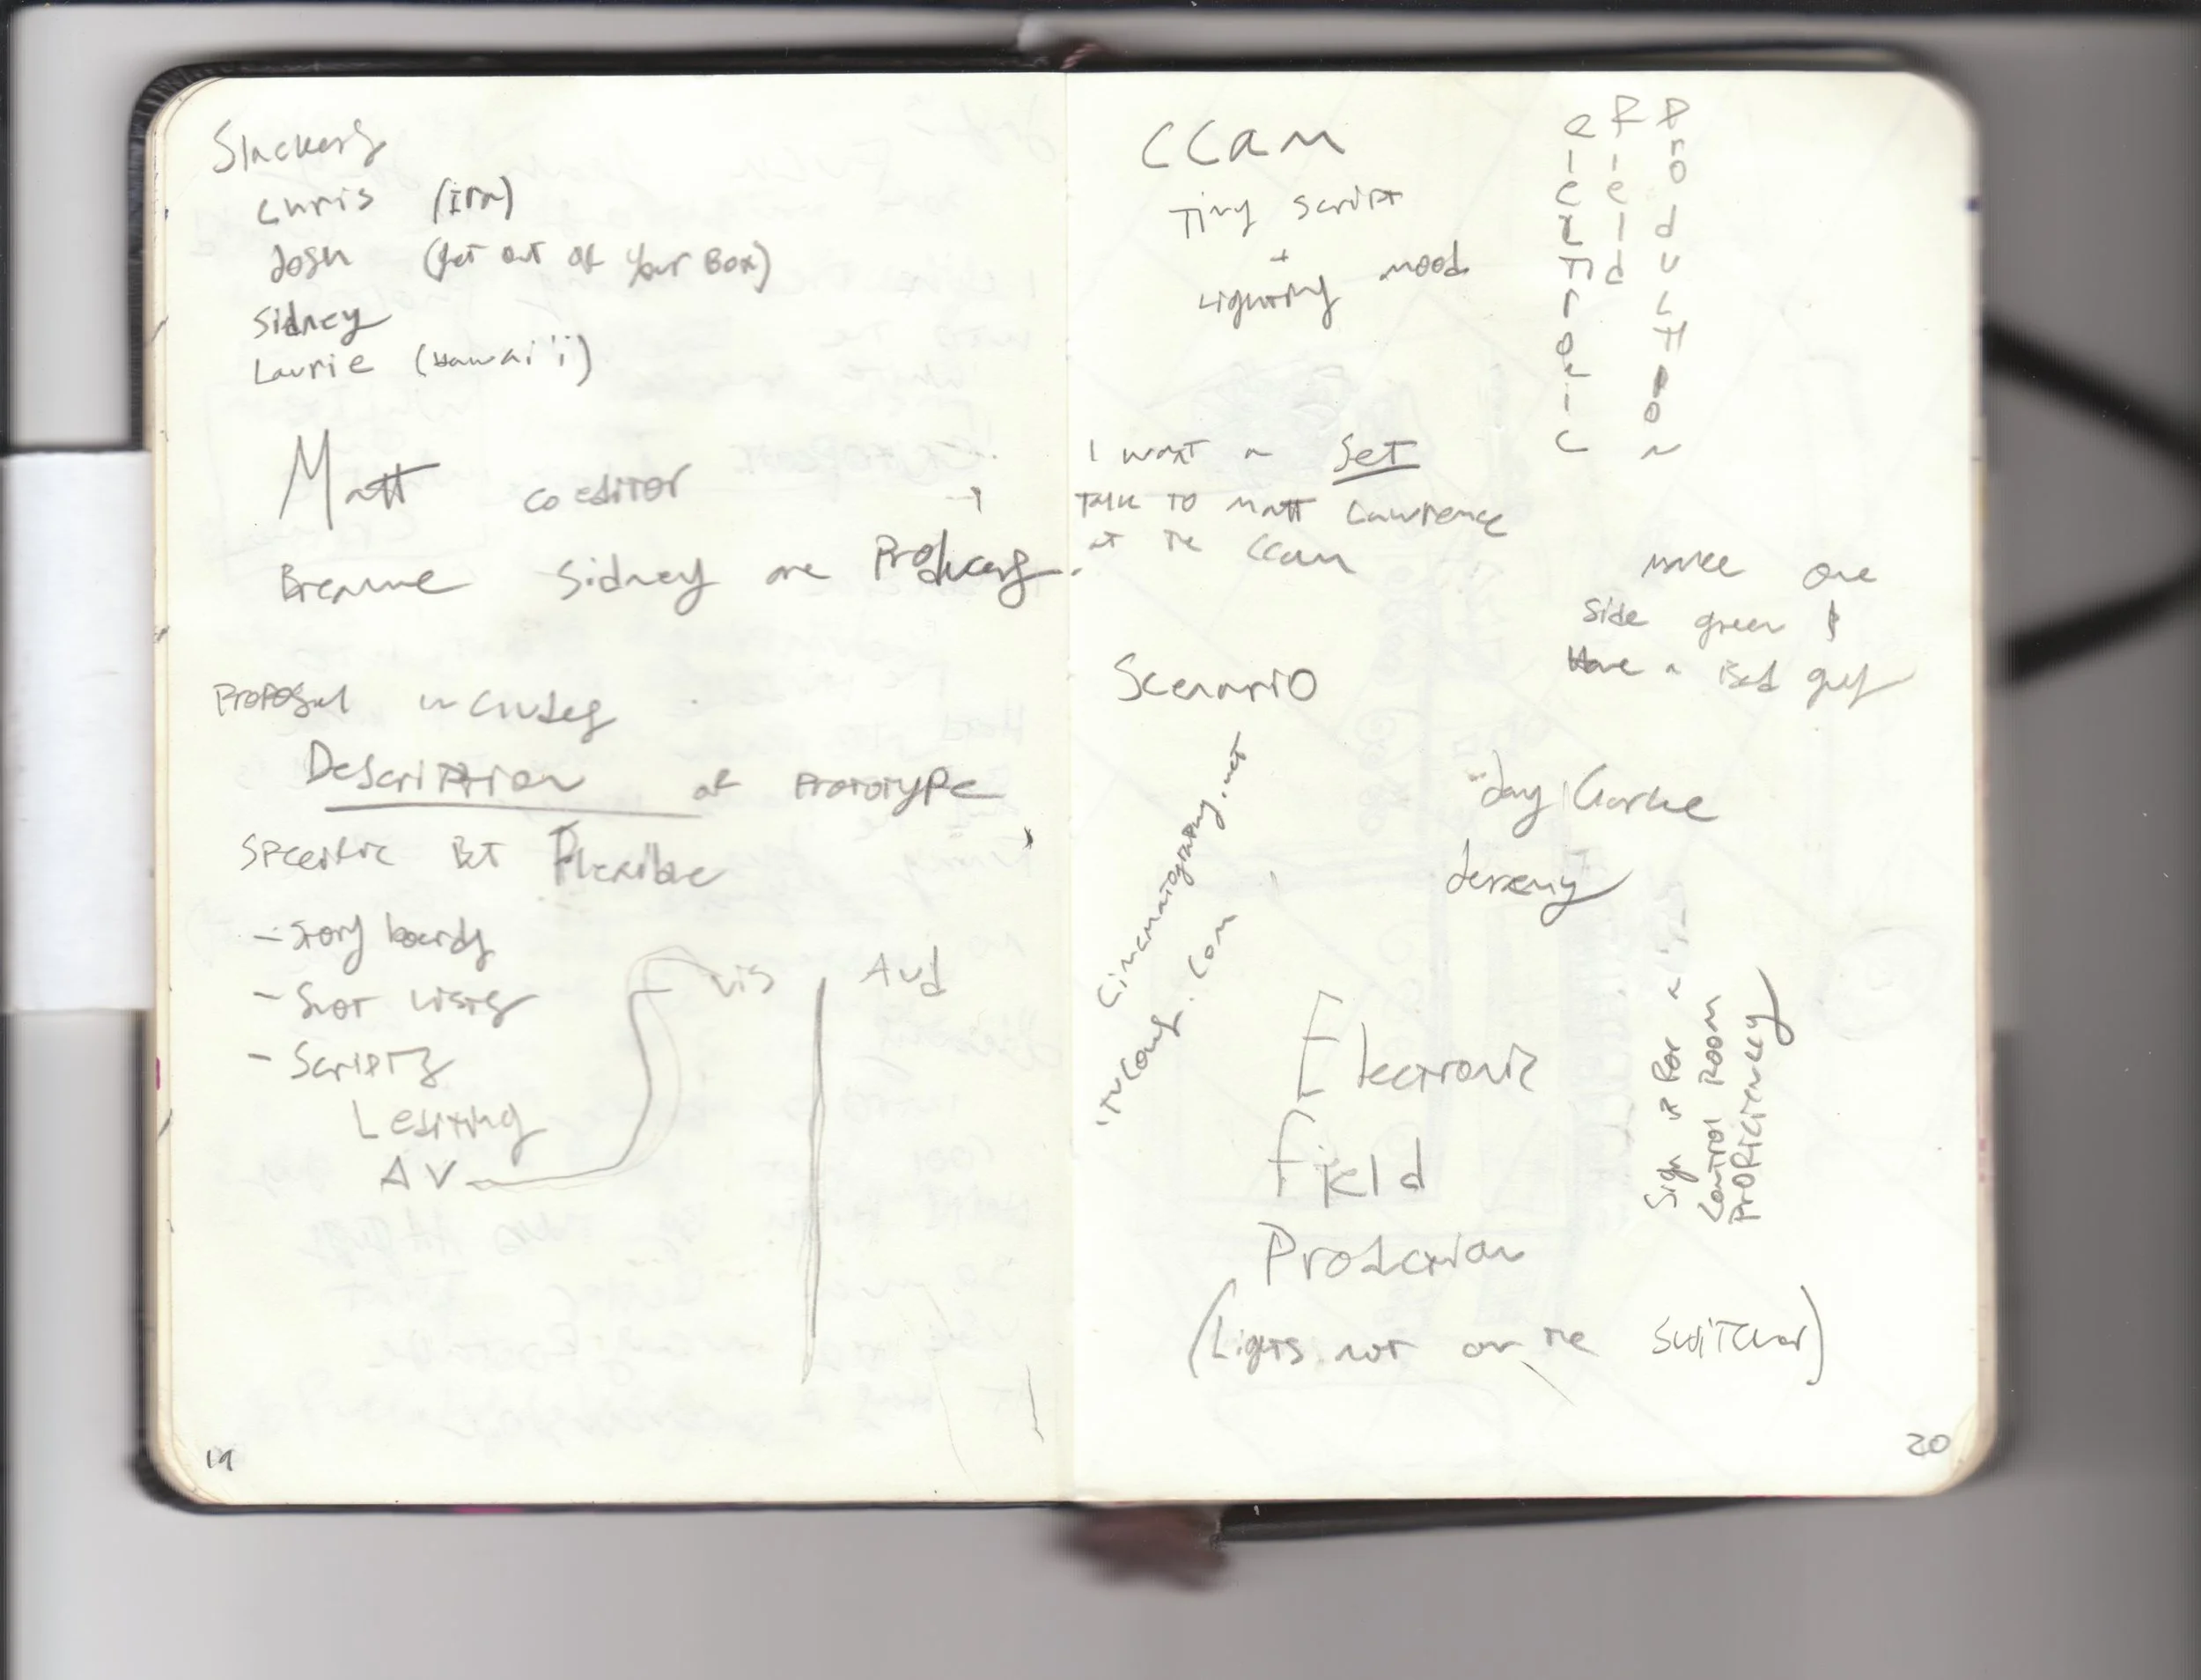 Slackers
Chris (Ira)
Josh (Get out of Your Box)
Sidney
Laurie (Hawai'i)
Matt co editor
Breanne Sidney are Producers.
Proposal includes
Description of Prototype
Specific Bt Flexible
- Story boards
- Shot Lists
- Scripts
AV
Vis Aud
19
CCam
Tiny script
+
Lighting mood
Electronic
Field
Production
I want a Set
Talk to Matt Lawrence
at the CCam
make one
side green &
Have a
Scenario
Cinematography.net
.com
Jay
Jeremy
Electronic
Field
Production
Sign up for a
Control Room
Proficiency
(Lights not on the switcher)
20